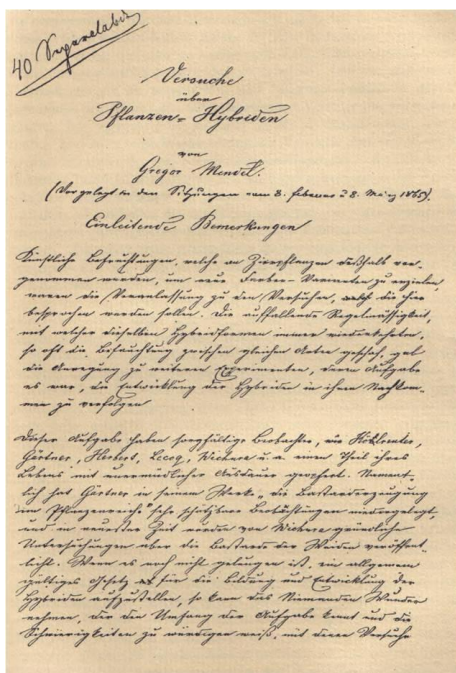 40 Separatabdr.
Versuche
über
Pflanzen-Hybriden
von
Gregor Mendel.
(Vorgelegt in den Sitzungen vom 8. Februar u. 8. März 1865).
Einleitende Bemerkungen
Künstliche Befruchtungen, welche an Zierpflanzen deßhalb vor-
genommen wurden, um neue Farben-Varianten zu erzielen,
waren die Veranlassung zu den Versuchen, die hier
besprochen werden sollen. Die auffallende Regelmässigkeit,
mit welcher dieselben Hybridformen immer wiederkehrten,
so oft die Befruchtung zwischen gleichen Arten geschah, gab
die Anregung zu weiteren Experimenten, deren Aufgabe
es war, die Entwicklung der Hybriden in ihren Nachkom-
men zu verfolgen
Dieser Aufgabe haben sorgfältige Beobachter, wie Kölreuter,
Gärtner, Herbert, Lecoq, Wichura u. a. einen Theil ihres
Lebens mit unermüdlicher Ausdauer geopfert. Nament-
lich hat Gärtner in seinem Werke „die Bastarderzeugung
im Pflanzenreiche" sehr schätzbare Beobachtungen niedergelegt,
und in neuester Zeit wurden von Wichura gründliche
Untersuchungen über die Bastarde der Weiden veröffent-
licht. Wenn es noch nicht gelungen ist, ein allgemein
gültiges Gesetz für die Bildung und Entwicklung der
Hybriden aufzustellen, so kann das Niemanden Wunder
nehmen, der den Umfang der Aufgabe kennt und die
Schwierigkeiten zu würdigen weiß, mit denen Versuche